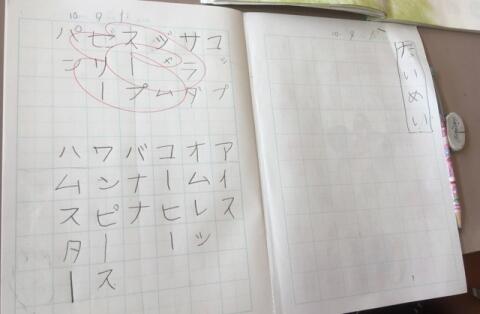 だいめい
10. 9.
10. 9.
コップ
サラダ
ジャム
スープ
ゼリー
パン
アイス
オムレツ
コーヒー
バナナ
ワンピース
ハムスター